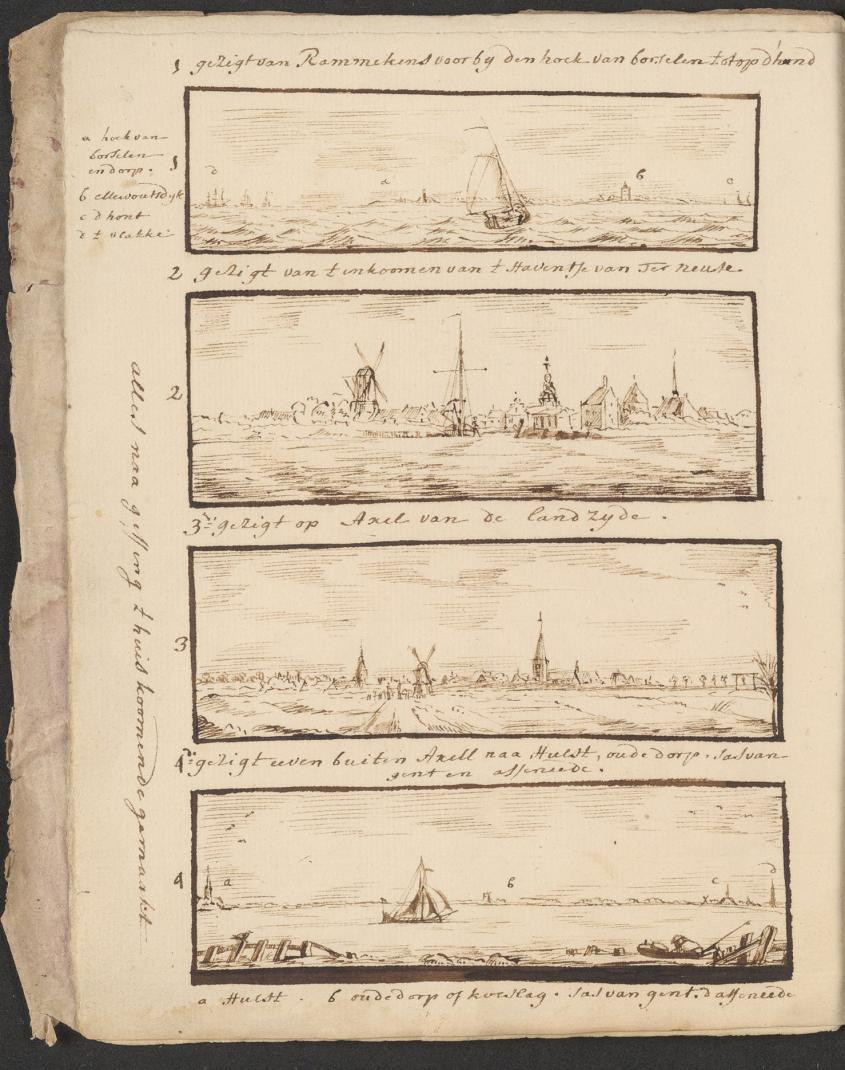 1 gezigt van Rammekens voorby den hoek van borselen tot op d'hond
a hoek van
borselen
en dorp.
b ellewoutsdyk
c d hont
d t vlakke
1
d a b c
2 gezigt van t inkoomen van t Haventje van Ter Neuse
2
3de gezigt op Axel van de landzyde.
3
4de gezigt eeven buiten Axell naa Hulst, oude dorp. sas van
gent en asseneede.
4
a b c d
a Hulst. b oude dorp of sas van gent. d asseneede
alles naa gissing t huis koomende gemaakt